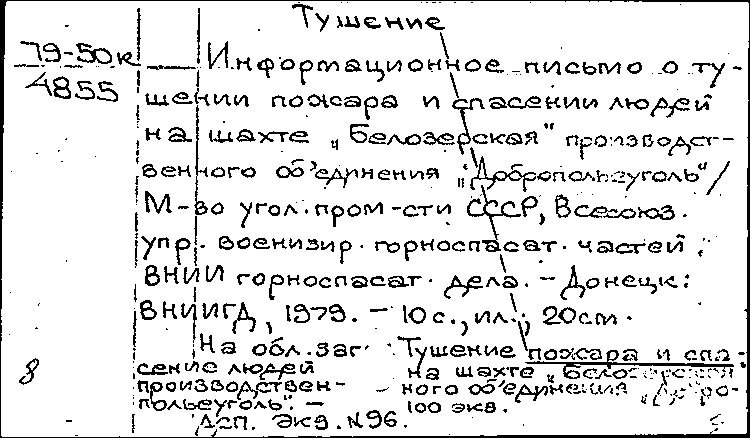 Тушение
79-50к
4855
Информационное письмо о ту-
шении пожара и спасении людей
на шахте „Белозерская" производст-
венного об'единения „Добропольеуголь"/
М-во угол. пром-сти СССР, Всесоюз.
упр. военизир. горноспасат. частей;
ВНИИ горноспасат. дела. – Донецк:
ВНИИГД, 1979. – 10 с., ил.; 20 см.
На обл. заг. Тушение пожара и спа-
сение людей на шахте „Белозерская"
производствен- ного об'единения „Добро-
польеуголь". – 100 экз.
ДСП. Экз. N96.
8